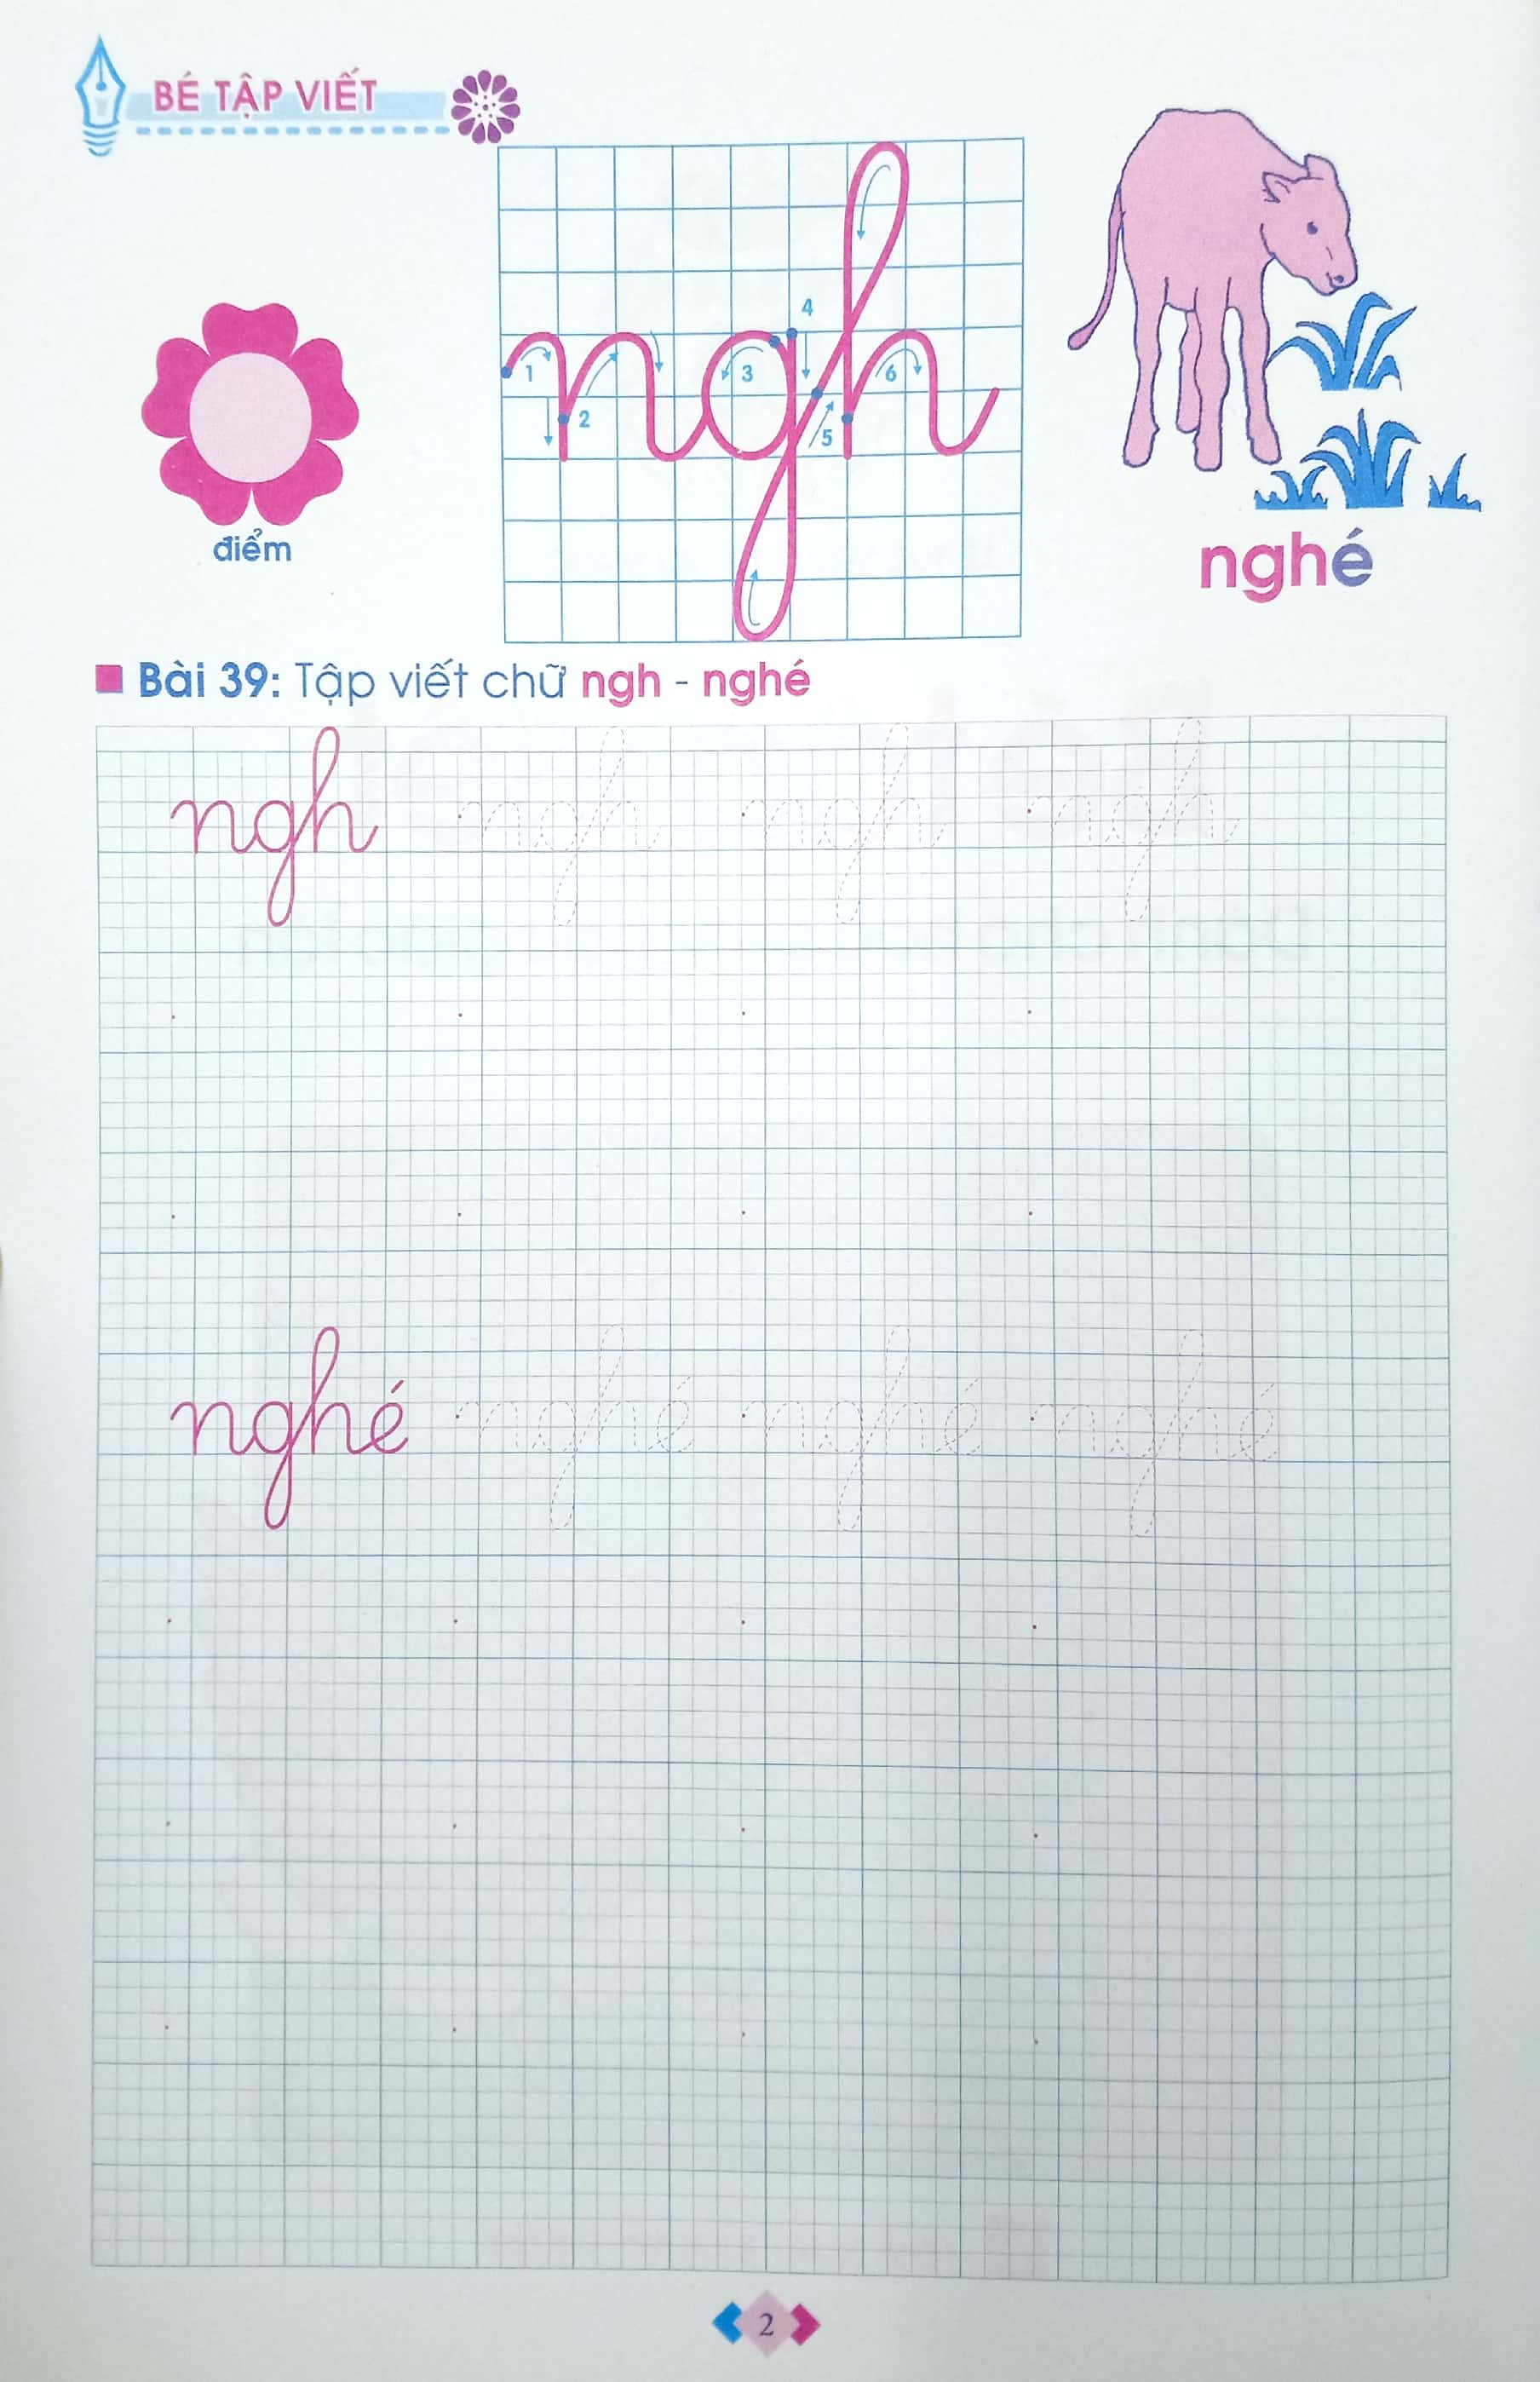 BÉ TẬP VIẾT
1 2 3 4 5 6
ngh
điểm
nghé
Bài 39: Tập viết chữ ngh - nghé
ngh ngh ngh ngh
nghé nghé nghé nghé
2